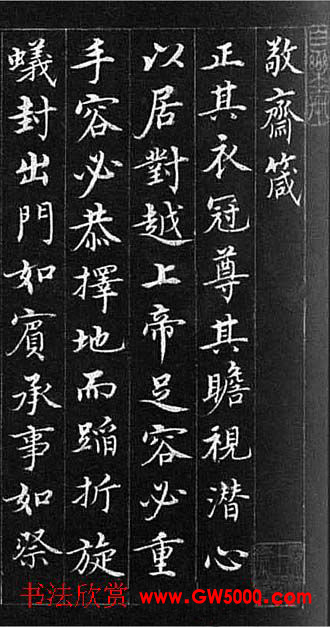 敬齋箴
正其衣冠尊其瞻視潛心
以居對越上帝足容必重
手容必恭擇地而蹈折旋
蟻封出門如賓承事如祭
书法欣赏 www.GW5000.com